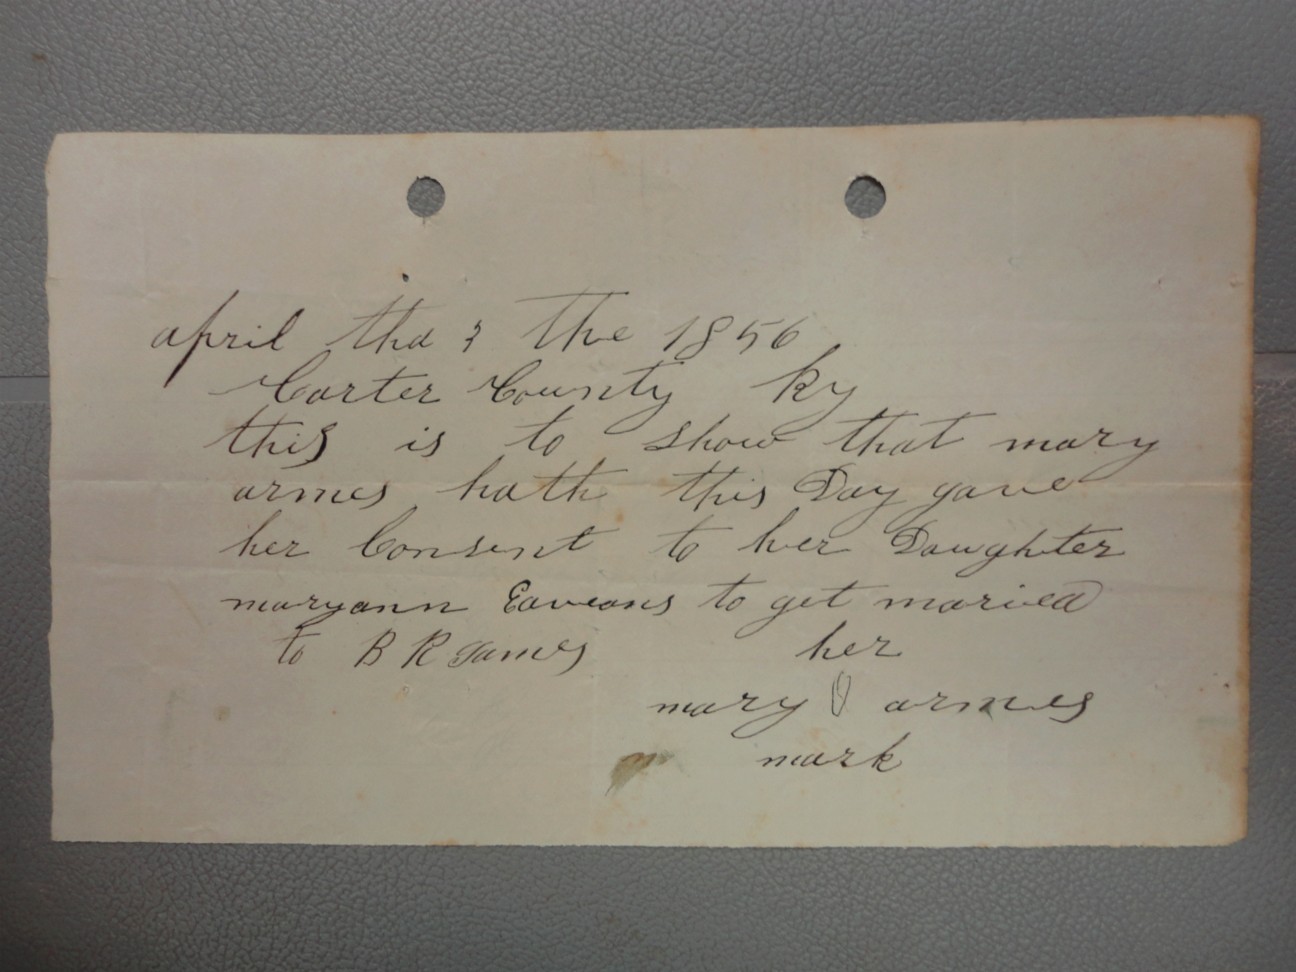 april tha 3 the 1856
Carter County Ky
this is to show that mary
armes hath this Day gave
her Consent to her Daughter
maryann Eaveans to get maried
to B R James
her
mary O armes
mark